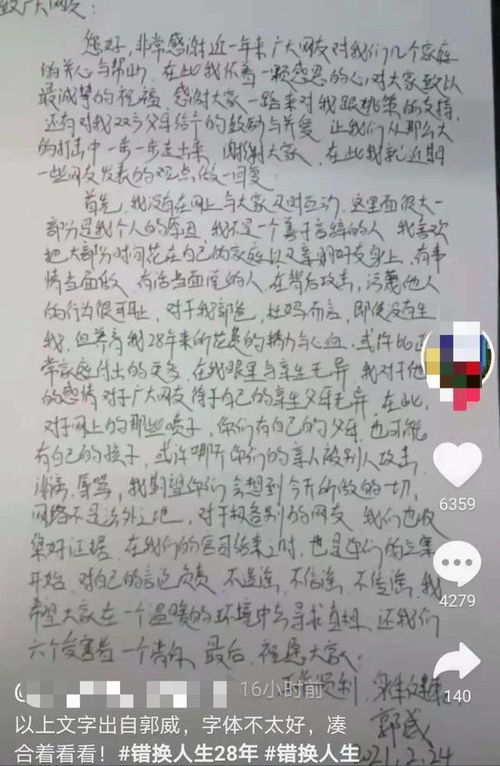 致广大网友：
您好，非常感谢近一年来广大网友对我们几个家庭
的关心与帮助，在此我怀着一颗感恩的心对大家致以
最诚挚的祝福，感谢大家一路来对我跟姚策的支持，
还有对我双方父母给予的鼓励与关爱，让我们从那么大
的打击中一步一步走出来，谢谢大家，在此我就近期
一些网友发表的观点做一回复：
首先，我没有在网上与大家及时互动，这里面很大一
部分是我个人的原因，我不是一个善于言辞的人，我喜欢
把大部分时间花在自己的家庭以及亲朋好友身上，有事
情当面做，有话当面说的人，在背后攻击，污蔑他人
的行为很可耻，对于我郭爸，杜妈而言，即使没有生
我，但养育我28年来所花费的精力与心血，或许比正
常家庭付出的更多，在我眼里与亲生无异，我对于他
的感情对于广大网友待于自己的亲生父母无异，在此，
对于网上的那些喷子，你们有自己的父母，也可能
有自己的孩子，或许哪天你们的亲人被别人攻击，
诽谤，辱骂，我期望你们会想到今天所做的一切，
网络不是法外之地，对于极各别的网友，我们也收
集好证据，在我们的官司结束之时，也是你们的立案
开始，对自己的言论负责，不造谣，不信谣，不传谣，我
希望大家在一个温暖的环境中去寻求真相，还我们
六个受害者一个清白，最后，祝愿大家：
郭威
2021.2.24
6359
4279
140
16小时前
以上文字出自郭威，字体不太好，凑
合着看看！#错换人生28年 #错换人生